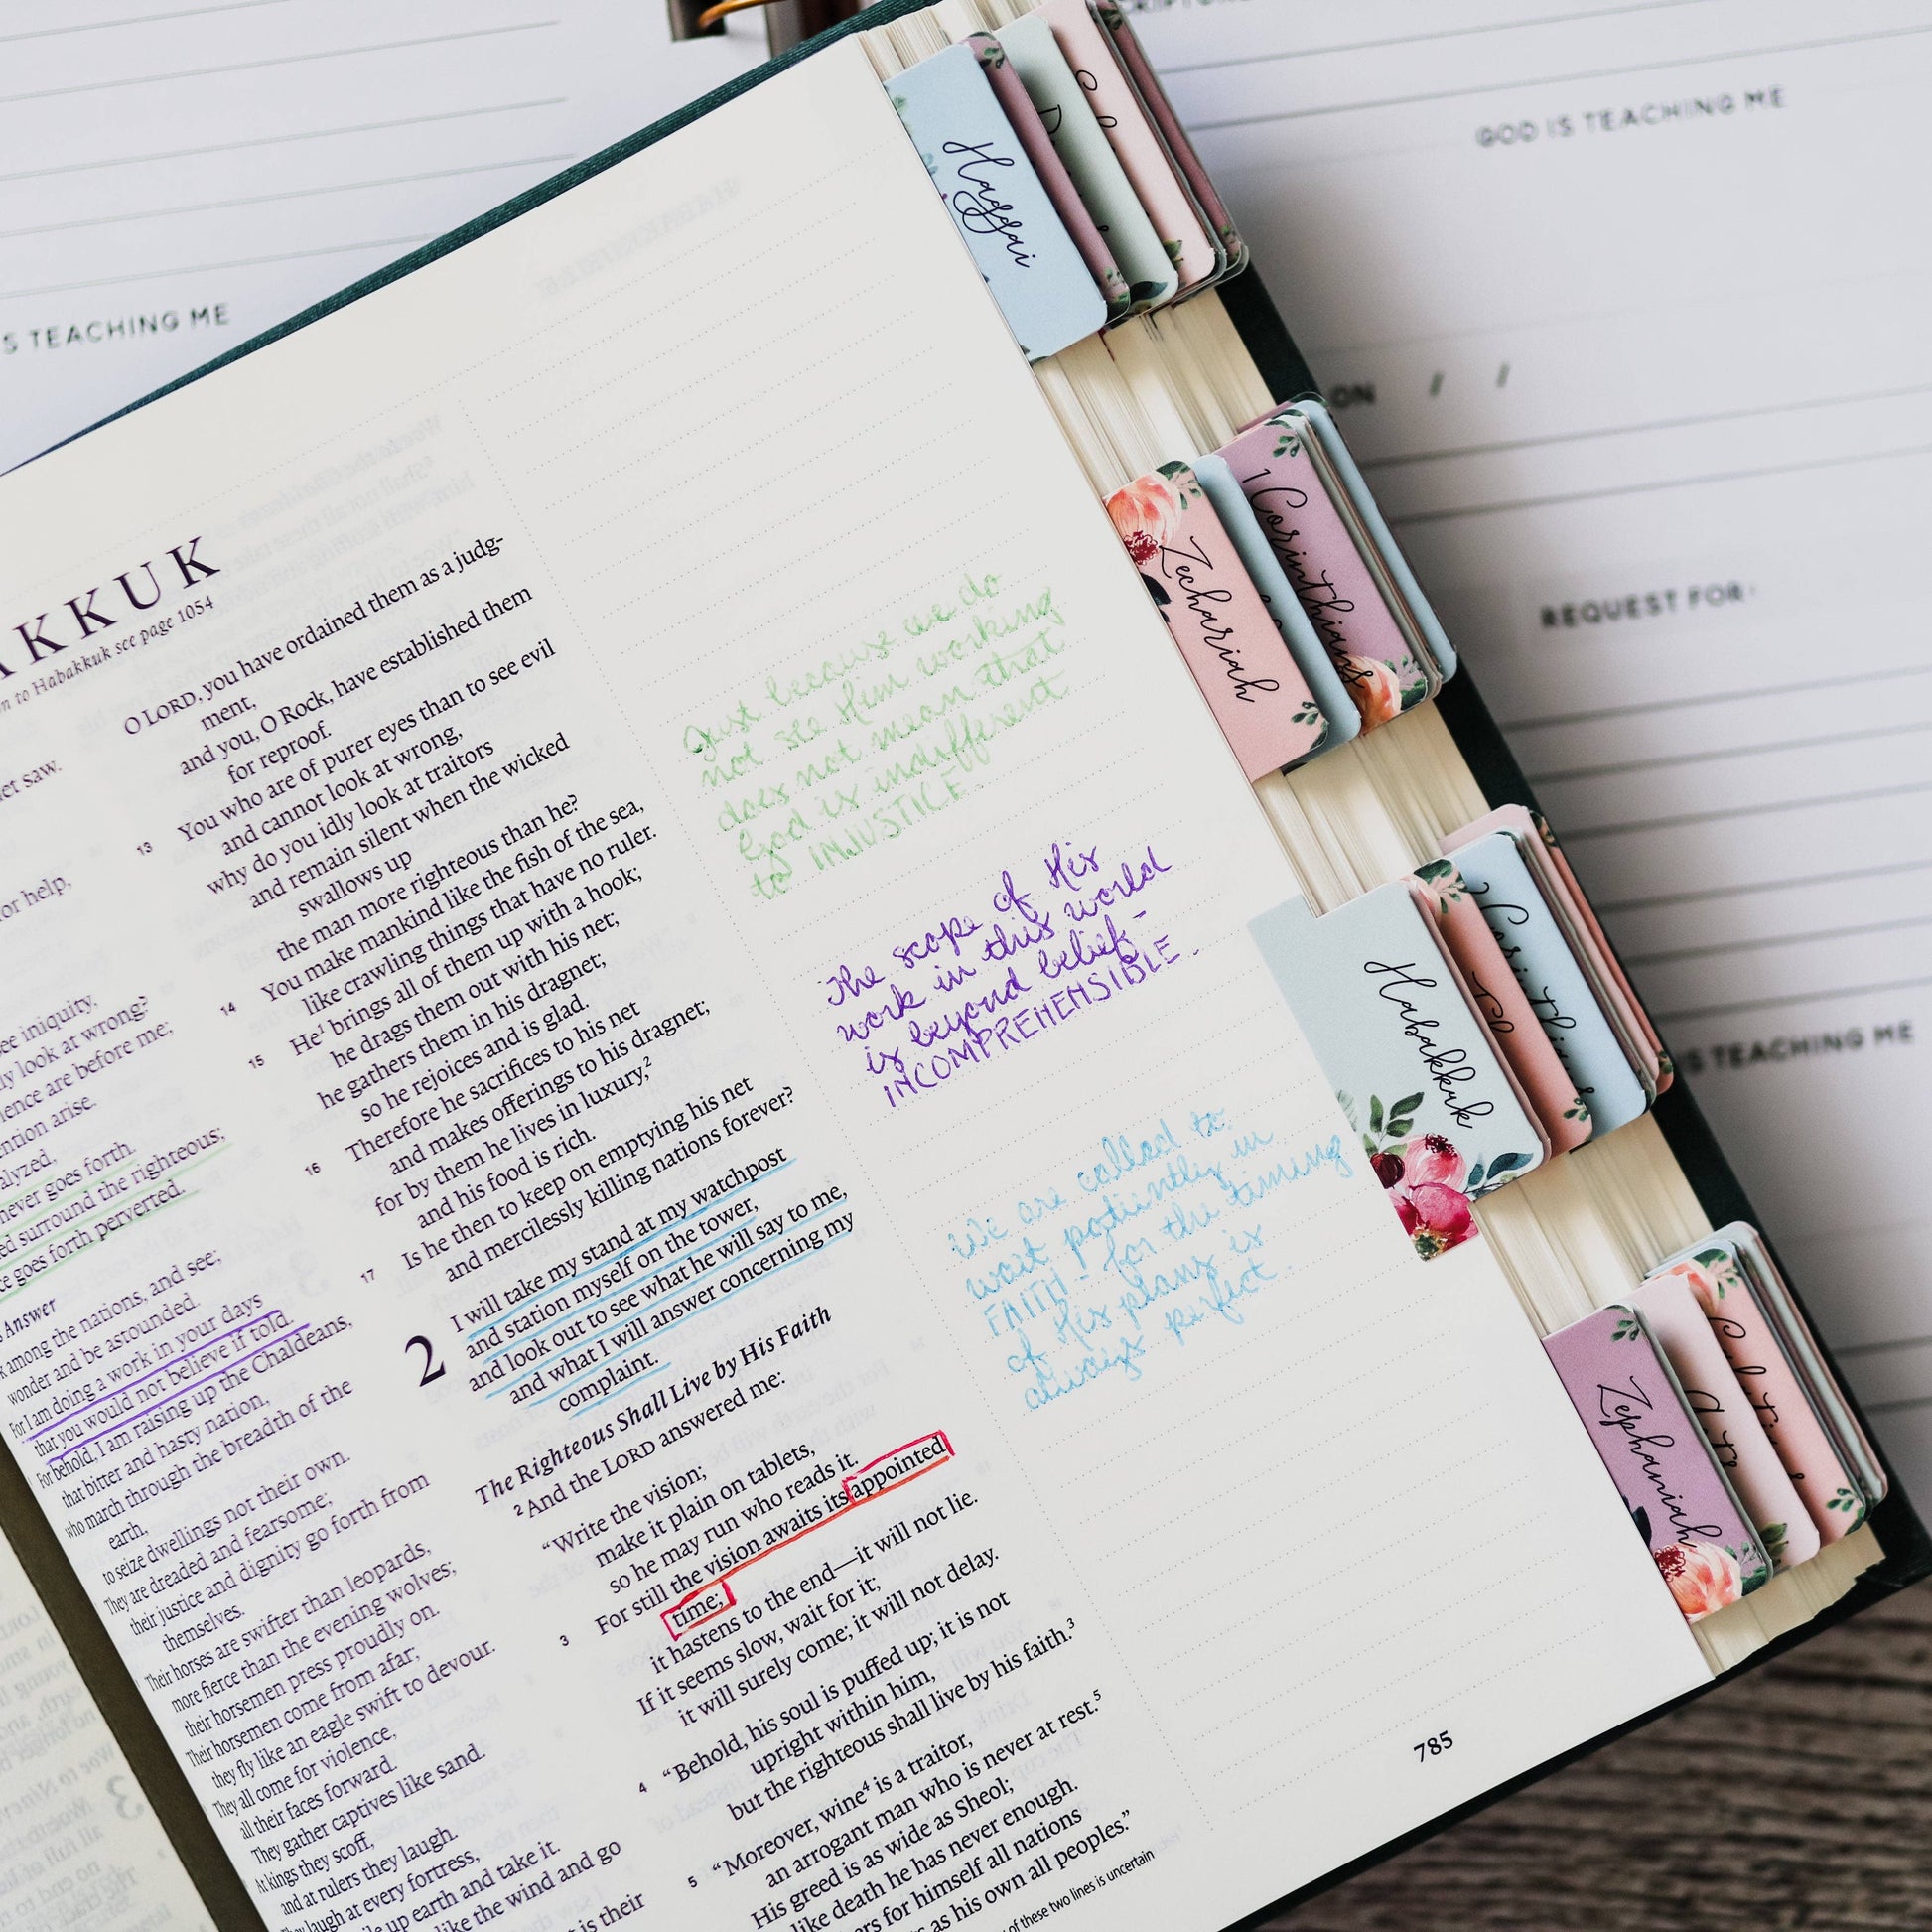 S TEACHING ME
GOD IS TEACHING ME
ON / /
REQUEST FOR:
S TEACHING ME
AKKUK
n to Habakkuk see page 1054
saw.
or help,
ee iniquity,
ly look at wrong?
lence are before me;
ntion arise.
alyzed,
never goes forth.
ed surround the righteous;
ce goes forth perverted.
Answer
among the nations, and see;
wonder and be astounded.
For I am doing a work in your days
that you would not believe if told.
For behold, I am raising up the Chaldeans,
that bitter and hasty nation,
who march through the breadth of the
earth,
to seize dwellings not their own.
They are dreaded and fearsome;
their justice and dignity go forth from
themselves.
Their horses are swifter than leopards,
more fierce than the evening wolves;
their horsemen press proudly on.
Their horsemen come from afar;
they fly like an eagle swift to devour.
They all come for violence,
all their faces forward.
They gather captives like sand.
At kings they scoff,
and at rulers they laugh.
They laugh at every fortress,
le up earth and take it.
like the wind and go
t is their
O LORD, you have ordained them as a judg-
ment,
and you, O Rock, have established them
for reproof.
13 You who are of purer eyes than to see evil
and cannot look at wrong,
why do you idly look at traitors
and remain silent when the wicked
swallows up
the man more righteous than he?
14 You make mankind like the fish of the sea,
like crawling things that have no ruler.
15 He¹ brings all of them up with a hook;
he drags them out with his net;
he gathers them in his dragnet;
so he rejoices and is glad.
16 Therefore he sacrifices to his net
and makes offerings to his dragnet;
for by them he lives in luxury,²
and his food is rich.
17 Is he then to keep on emptying his net
and mercilessly killing nations forever?
2 I will take my stand at my watchpost
and station myself on the tower,
and look out to see what he will say to me,
and what I will answer concerning my
complaint.
The Righteous Shall Live by His Faith
² And the LORD answered me:
“Write the vision;
make it plain on tablets,
so he may run who reads it.
3 For still the vision awaits its appointed
time;
it hastens to the end—it will not lie.
If it seems slow, wait for it;
it will surely come; it will not delay.
4 “Behold, his soul is puffed up; it is not
upright within him,
but the righteous shall live by his faith.³
5 “Moreover, wine⁴ is a traitor,
an arrogant man who is never at rest.⁵
His greed is as wide as Sheol;
like death he has never enough.
ers for himself all nations
s as his own all peoples.”
of these two lines is uncertain
Just because we do
not see Him working
does not mean that
God is indifferent
to INJUSTICE.
The scope of His
work in this world
is beyond belief -
INCOMPREHENSIBLE.
We are called to
wait patiently in
FAITH - for the timing
of His plans is
always perfect.
785
Haggai
Zechariah
1 Corinthians
Habakkuk
2 Corinthians
Zephaniah